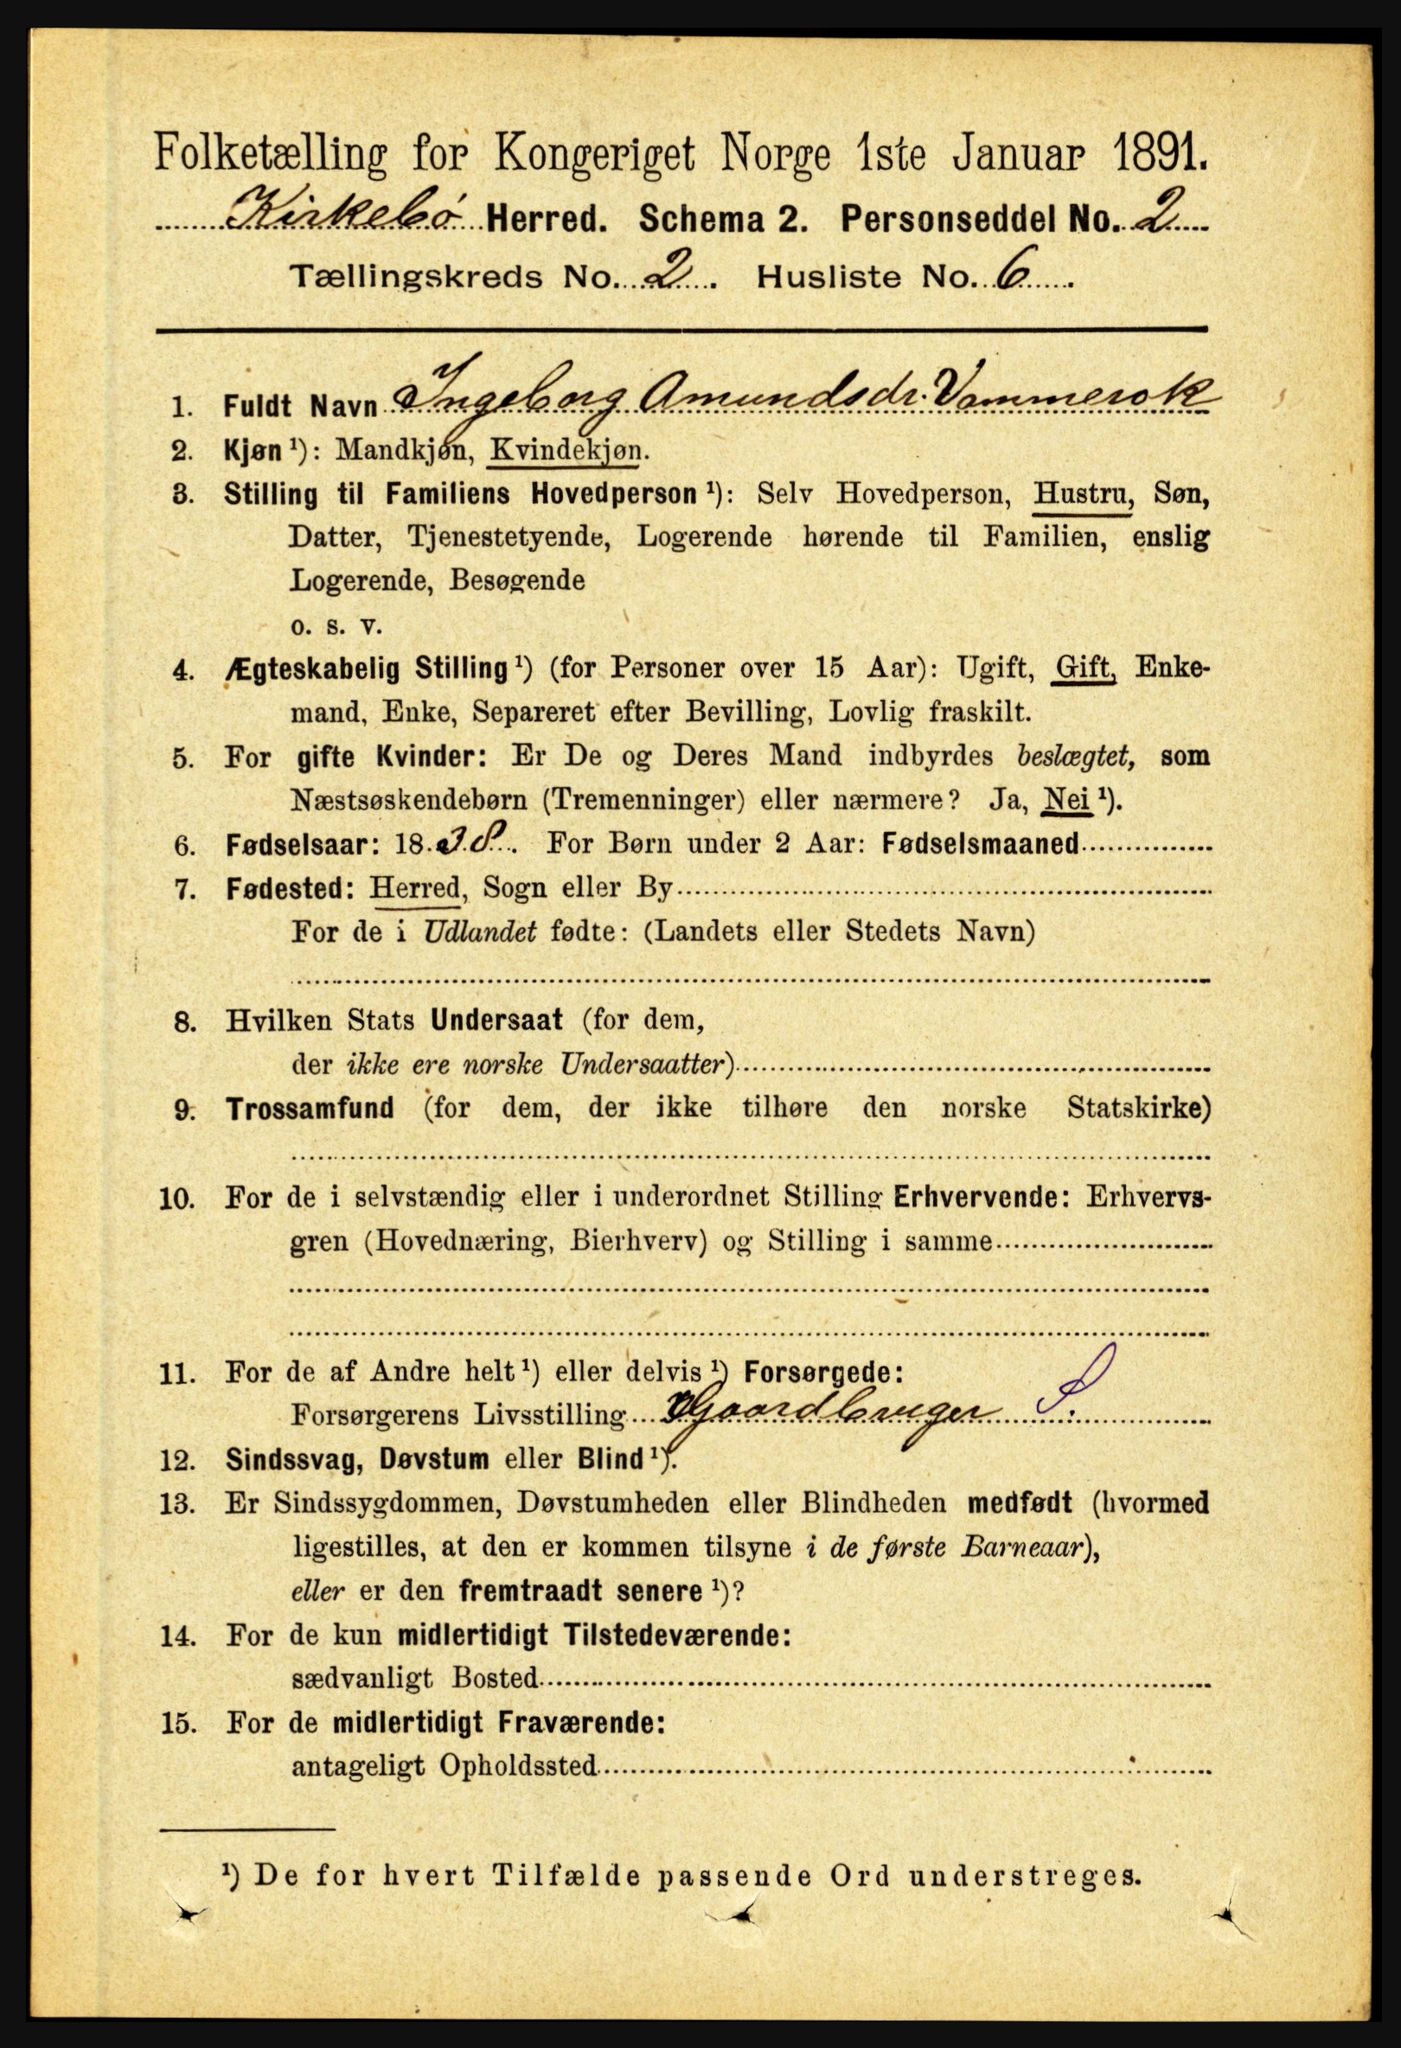 Folketælling for Kongeriget Norge 1ste Januar 1891.
Kirkebø Herred. Schema 2. Personseddel No. 2
Tællingskreds No. 2. Husliste No. 6.
1. Fuldt Navn Ingeborg Amundsdr. Vammersok
2. Kjøn ¹): Mandkjøn, Kvindekjøn.
3. Stilling til Familiens Hovedperson ¹): Selv Hovedperson, Hustru, Søn,
Datter, Tjenestetyende, Logerende hørende til Familien, enslig
Logerende, Besøgende
o. s. v.
4. Ægteskabelig Stilling ¹) (for Personer over 15 Aar): Ugift, Gift, Enke-
mand, Enke, Separeret efter Bevilling, Lovlig fraskilt.
5. For gifte Kvinder: Er De og Deres Mand indbyrdes beslægtet, som
Næstsøskendebørn (Tremenninger) eller nærmere? Ja, Nei ¹).
6. Fødselsaar: 1838. For Børn under 2 Aar: Fødselsmaaned
7. Fødested: Herred, Sogn eller By
For de i Udlandet fødte: (Landets eller Stedets Navn)
8. Hvilken Stats Undersaat (for dem,
der ikke ere norske Undersaatter)
9. Trossamfund (for dem, der ikke tilhøre den norske Statskirke)
10. For de i selvstændig eller i underordnet Stilling Erhvervende: Erhvervs-
gren (Hovednæring, Bierhverv) og Stilling i samme
11. For de af Andre helt ¹) eller delvis ¹) Forsørgede:
Forsørgerens Livsstilling Gaardbruger S.
12. Sindssvag, Døvstum eller Blind ¹).
13. Er Sindssygdommen, Døvstumheden eller Blindheden medfødt (hvormed
ligestilles, at den er kommen tilsyne i de første Barneaar),
eller er den fremtraadt senere ¹)?
14. For de kun midlertidigt Tilstedeværende:
sædvanligt Bosted
15. For de midlertidigt Fraværende:
antageligt Opholdssted
¹) De for hvert Tilfælde passende Ord understreges.